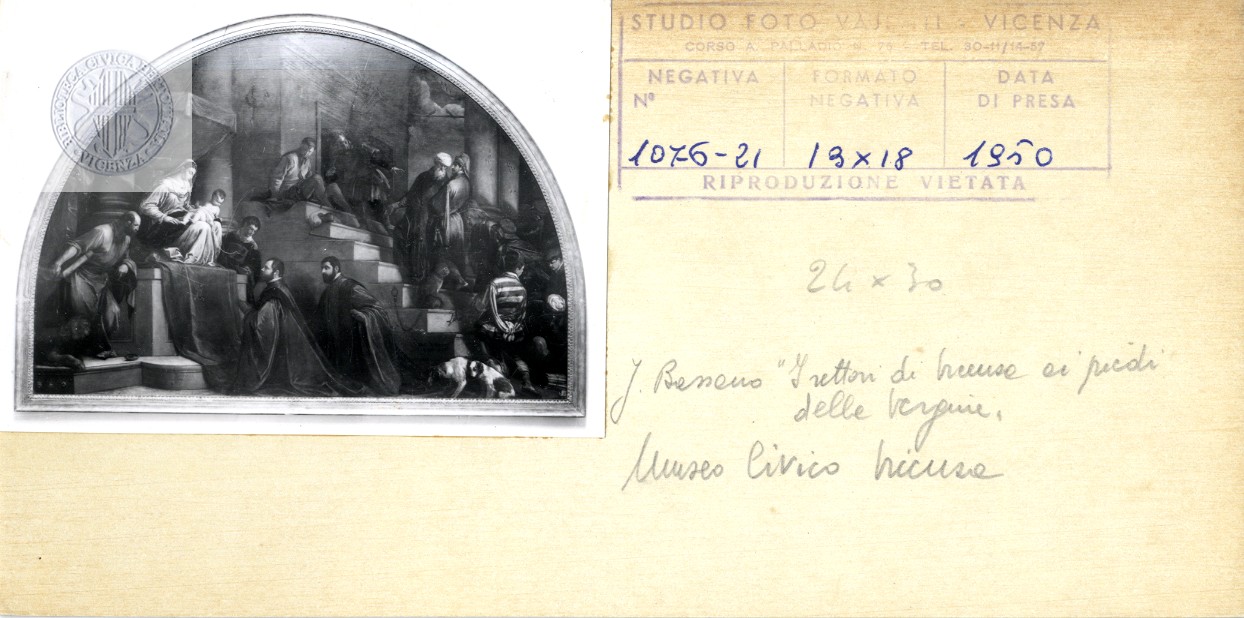 BIBLIOTECA CIVICA BERTOLIANA
VICENZA
STUDIO FOTO - VICENZA
CORSO A. PALLADIO N. TEL. 30-11/14-57
NEGATIVA
Nº
FORMATO
NEGATIVA
DATA
DI PRESA
1076-21
13x18
1950
RIPRODUZIONE VIETATA
24 x 30
J. Bassano "I rettori di Vicenza ai piedi
della Vergine.
Museo Civico Vicenza